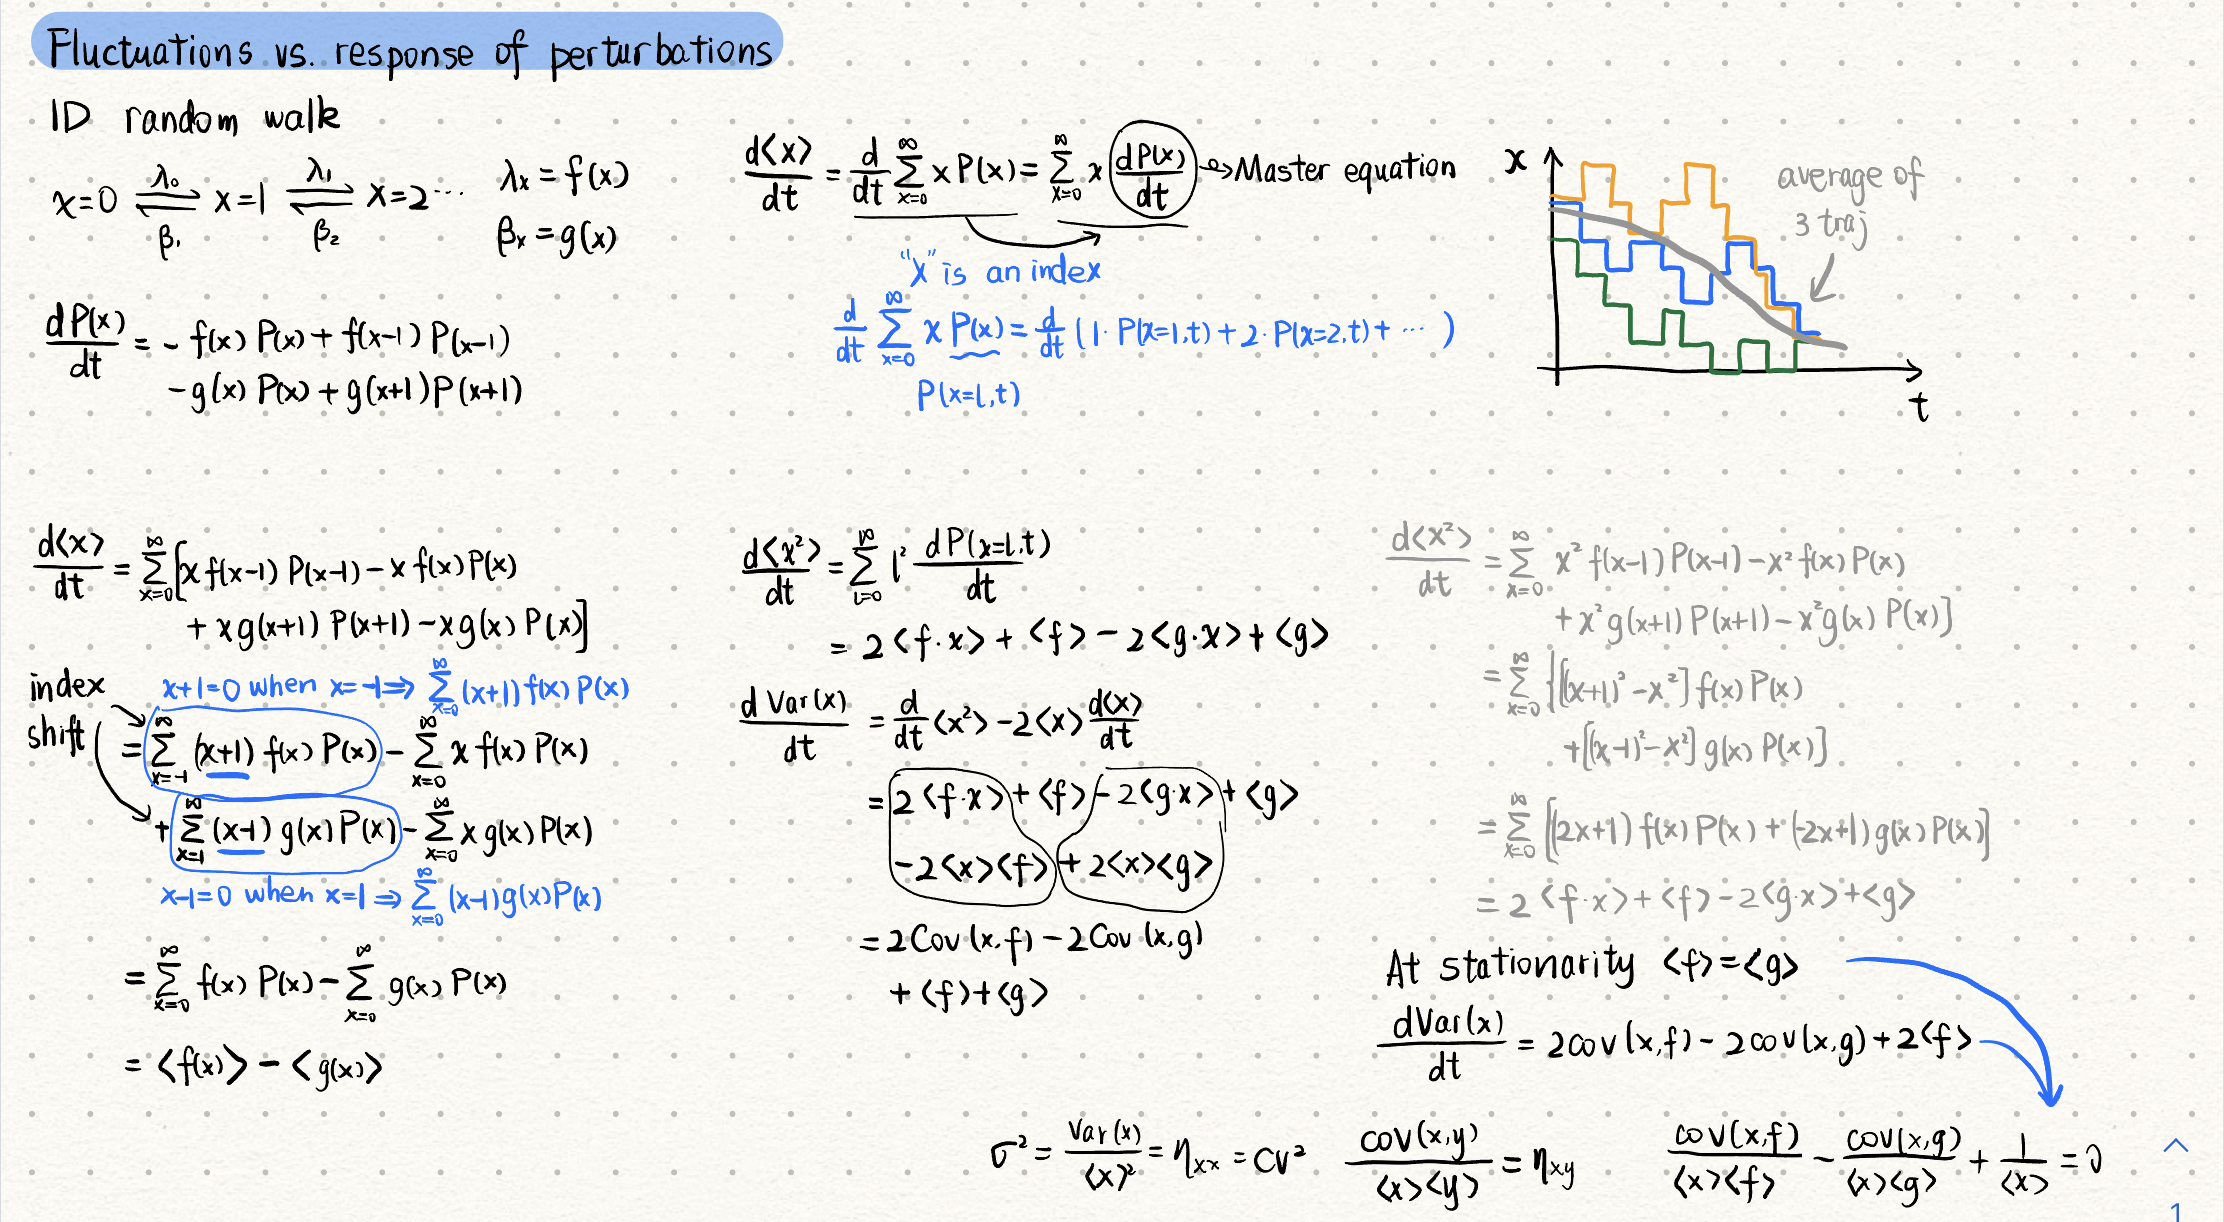 Fluctuations vs. response of perturbations
1D random walk
x=0 ⇌ x=1 ⇌ x=2 ⋯
λ₀ λ₁
β₁ β₂
λₓ = f(x)
βₓ = g(x)
dP(x)/dt = - f(x) P(x) + f(x-1) P(x-1)
- g(x) P(x) + g(x+1) P(x+1)
d<x>/dt = d/dt ∑_{x=0}^∞ x P(x) = ∑_{x=0}^∞ x dP(x)/dt → Master equation
"x" is an index
d/dt ∑_{x=0}^∞ x P(x) = d/dt (1· P(x=1,t) + 2· P(x=2,t) + ⋯ )
P(x=l,t)
x
average of
3 traj
t
d<x>/dt = ∑_{x=0}^∞ [x f(x-1) P(x-1) - x f(x) P(x)
+ x g(x+1) P(x+1) - x g(x) P(x)]
index
shift
x+1=0 when x=-1 ⇒ ∑_{x=0}^∞ (x+1) f(x) P(x)
= ∑_{x=-1}^∞ (x+1) f(x) P(x) - ∑_{x=0}^∞ x f(x) P(x)
+ ∑_{x=1}^∞ (x-1) g(x) P(x) - ∑_{x=0}^∞ x g(x) P(x)
x-1=0 when x=1 ⇒ ∑_{x=0}^∞ (x-1) g(x) P(x)
= ∑_{x=0}^∞ f(x) P(x) - ∑_{x=0}^∞ g(x) P(x)
= <f(x)> - <g(x)>
d<x²>/dt = ∑_{l=0}^∞ l² dP(x=l,t)/dt
= 2<f·x> + <f> - 2<g·x> + <g>
d Var(x)/dt = d/dt <x²> - 2<x> d<x>/dt
= 2<f·x> + <f> - 2<g·x> + <g>
- 2<x><f> + 2<x><g>
= 2Cov(x,f) - 2Cov(x,g)
+ <f> + <g>
d<x²>/dt = ∑_{x=0}^∞ x² f(x-1) P(x-1) - x² f(x) P(x)
+ x² g(x+1) P(x+1) - x² g(x) P(x)]
= ∑_{x=0}^∞ {[(x+1)² - x²] f(x) P(x)
+ [(x-1)² - x²] g(x) P(x)]
= ∑_{x=0}^∞ [(2x+1) f(x) P(x) + (-2x+1) g(x) P(x)]
= 2<f·x> + <f> - 2<g·x> + <g>
At stationarity <f> = <g>
dVar(x)/dt = 2cov(x,f) - 2cov(x,g) + 2<f>
σ² = Var(x)/<x>² = η_xx = CV²
cov(x,y)/<x><y> = η_xy
cov(x,f)/<x><f> - cov(x,g)/<x><g> + 1/<x> = 0
1